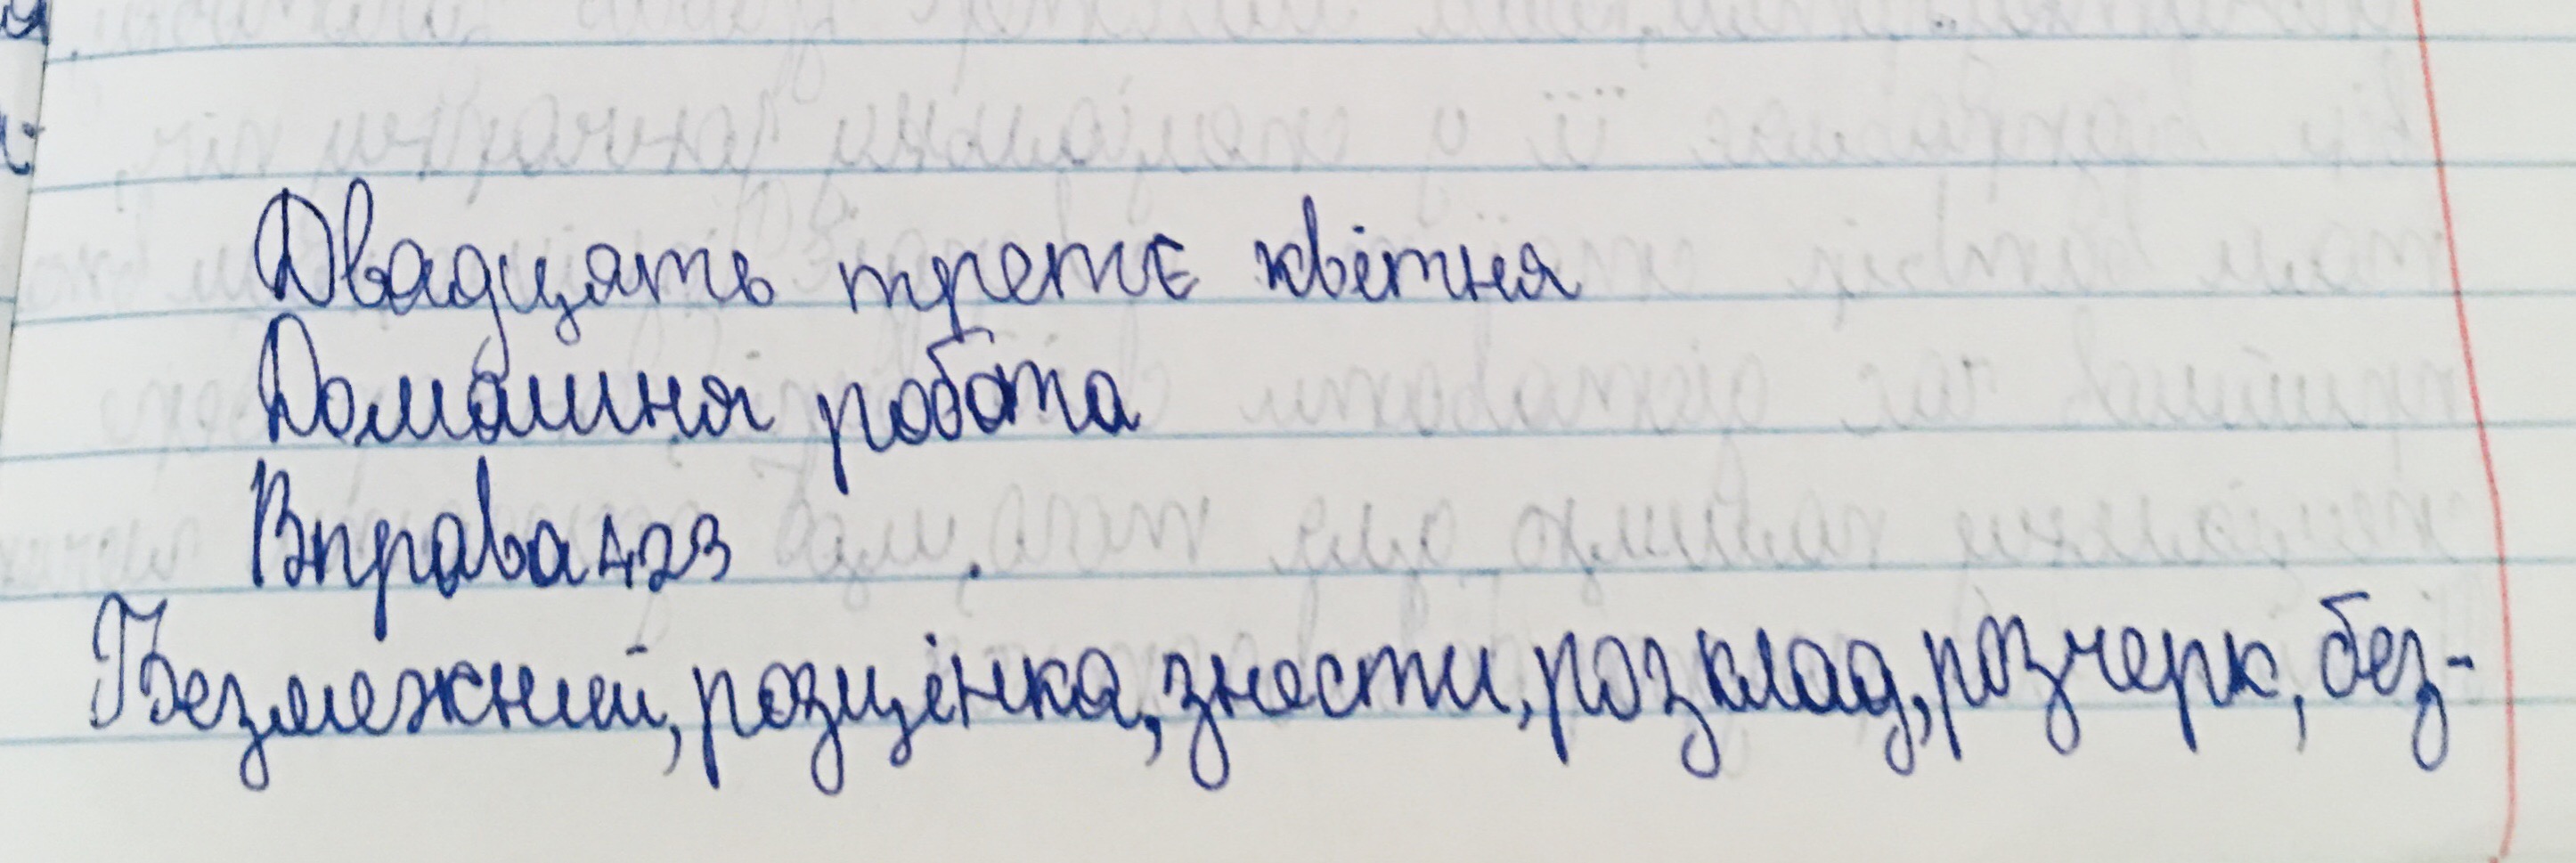 Двадцять третє квітня
Домашня робота
Вправа 423
Безмежний, розцінка, знести, розклад, розчерк, без-